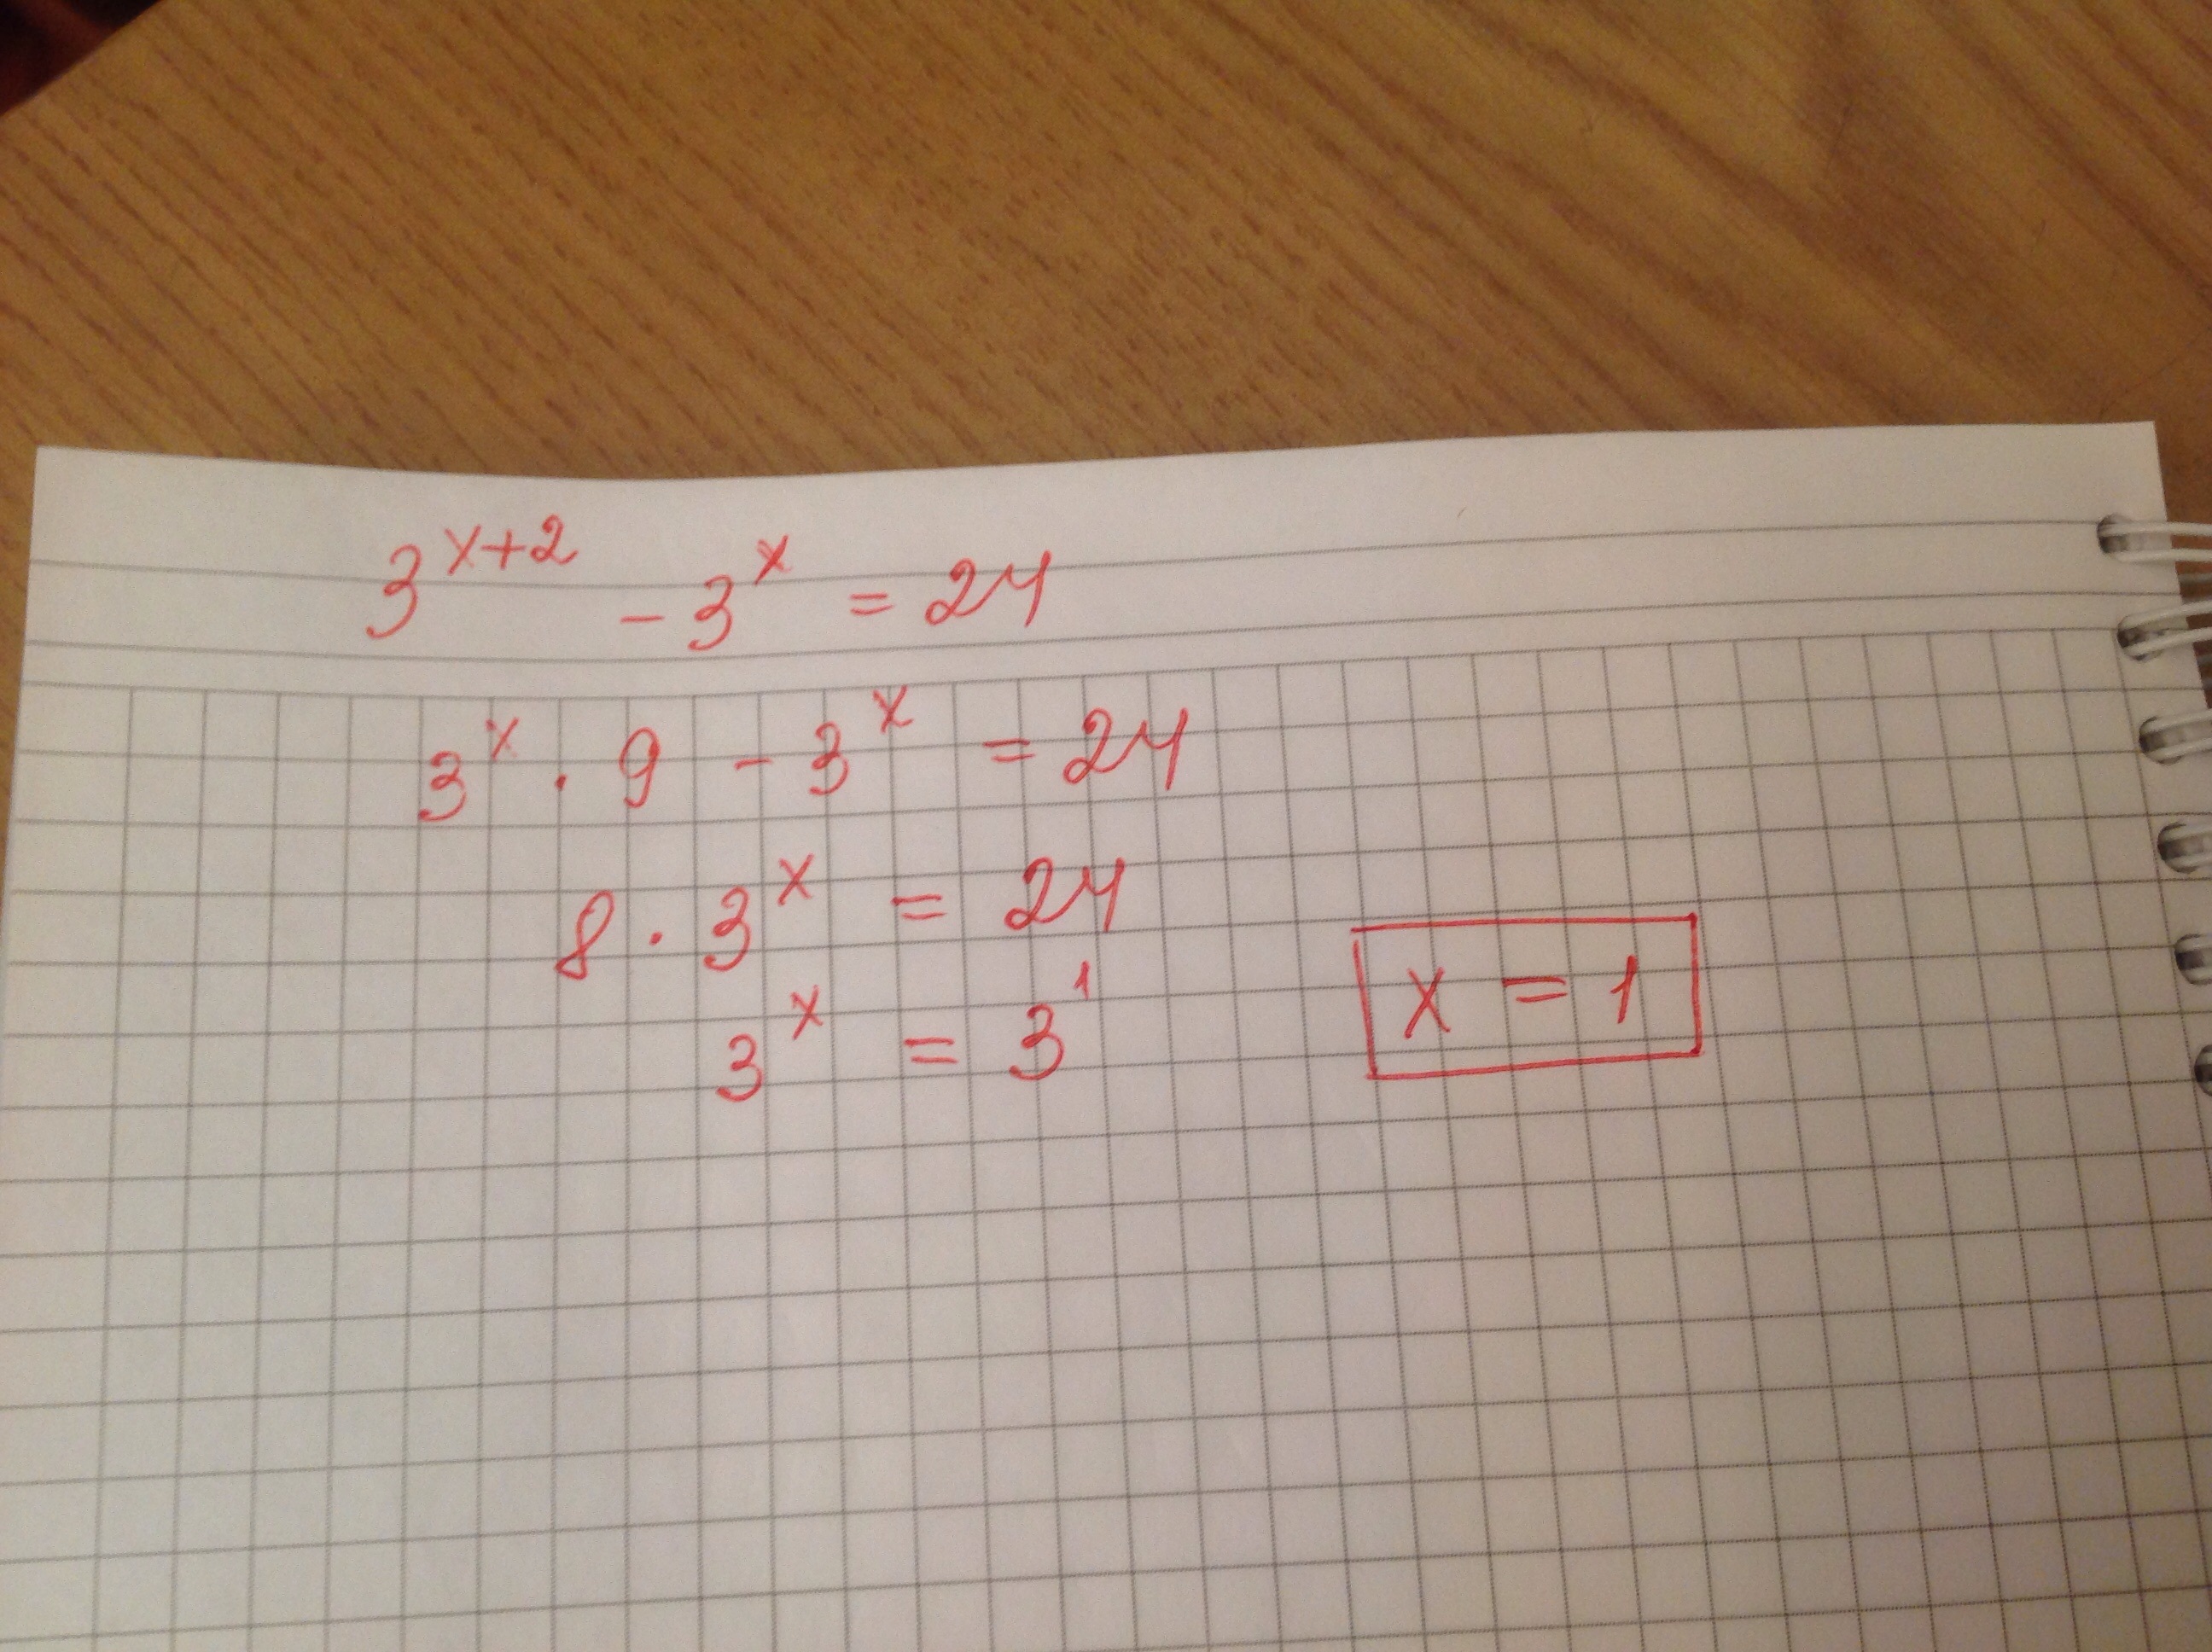 3^{x+2} - 3^x = 24
3^x · 9 - 3^x = 24
8 · 3^x = 24
3^x = 3^1
x = 1